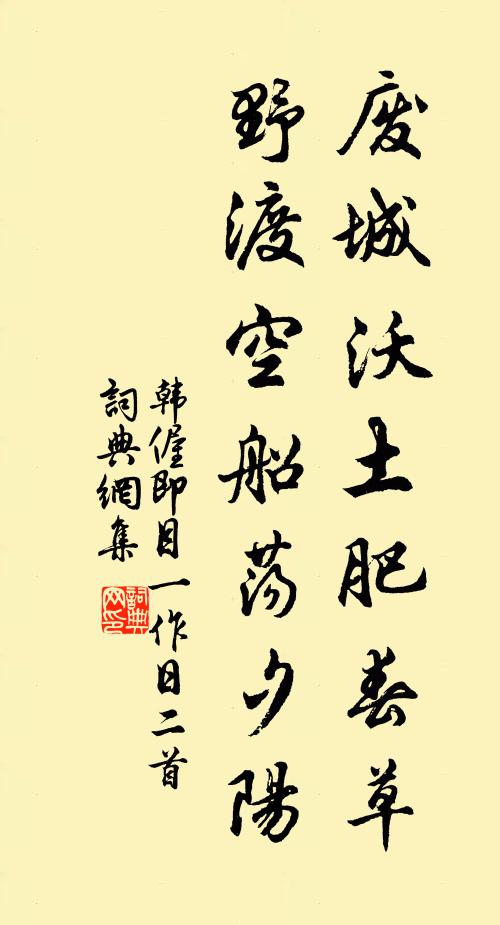 废城沃土肥春草
野渡空船荡夕陽
韩偓即目一作日二首
詞典網集
詞典网印